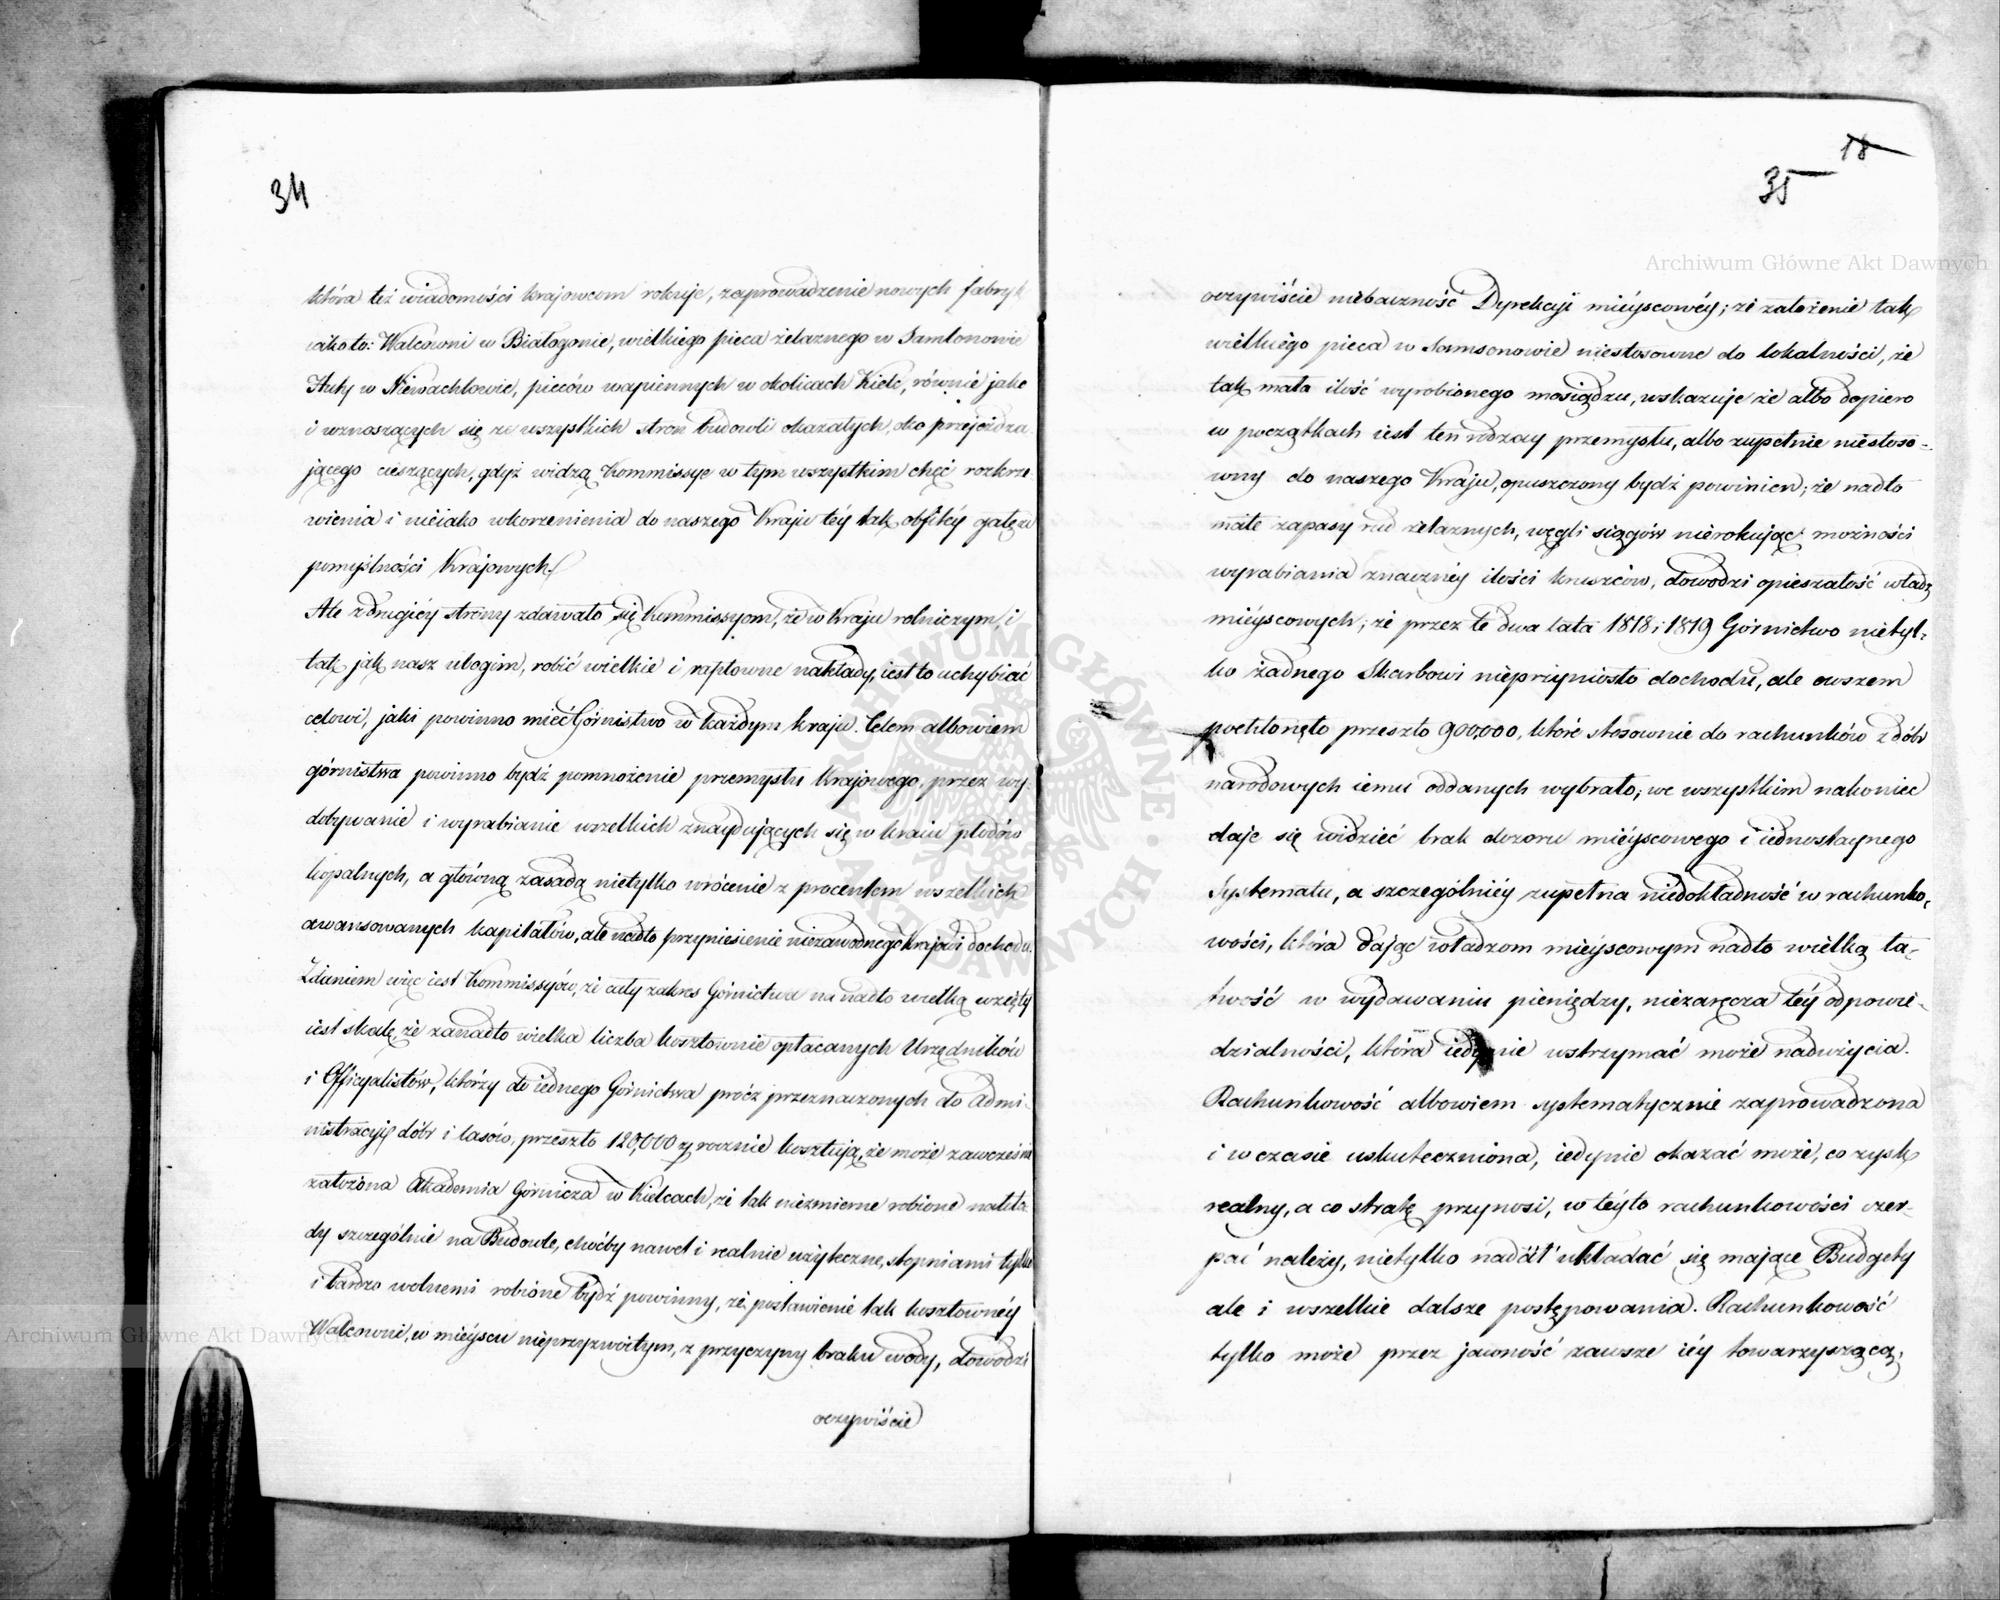 34
która też wiadomości krajowcom rokuje, zaprowadzenie nowych fabryk
iako to: Walcowni w Białogonie, wielkiego pieca żelaznego w Samsonowie
Huty w Niewachlowie, pieców wapiennych w okolicach Kielc, równie jako
i wznoszących się ze wszystkich stron budowli okazałych, oko przejeżdża-
jącego cieszących, gdyż widzą Kommissye w tym wszystkim chęć rozkrze-
wienia i nieiako wkorzenienia do naszego Kraju téy tak obfitéy gałęzi
pomyślności Krajowych.
Ale z drugiéy strony zdawało się Kommissyom, że w Kraju rolniczym, i
tak jak nasz ubogim, robić wielkie i raptowne nakłady, iest to uchybiać
celowi, jaki powinno mieć Górnistwo w każdym kraju. Celem albowiem
górnistwa powinno bydź pomnożenie przemysłu Krajowego, przez wy-
dobywanie i wyrabianie wszelkich znayduiących się w kraiu płodów
kopalnych, a główną zasadą nietylko wrócenie z procentem wszelkich
awansowanych kapitałów, ale nadto przyniesienie niezawodnego Krajowi dochodu.
Zdaniem więc iest Kommissyów, że cały zakres Górnictwa na nadto wielką wzięty
iest skalę, że zanadto wielka liczba kosztownie opłacanych Urzędników
i Officyalistów, którzy do iednego Górnictwa prócz przeznaczonych do Admi-
nistracyi dóbr i lasów, przeszło 120,000 zł rocznie kosztują, że może zawcześnie
założona Akademia Górnicza w Kielcach, że tak niezmierne robione nakła-
dy szczególnie na Budowle, choćby nawet i realnie użyteczne, stopniami tylko
i bardzo wolnemi robione bydź powinny, że postawienie tak kosztownéy
Walcowni, w mieyscu nieprzyzwoitym, z przyczyny braku wody, dowodzi
oczywiście
18
35
oczywiście niebaczność Dyrekcyi mieyscowéy; że założenie tak
wielkiego pieca w Samsonowie niestosowne do lokalności, że
tak mała ilość wyrobionego mosiądzu, wskazuje że albo dopiero
w początkach iest ten rodzay przemysłu, albo zupełnie niestoso-
wny do naszego Kraju, opuszczony bydź powinien; że nadto
małe zapasy rud żelaznych, węgli siągów nierokując możności
wyrabiania znacznéy ilości kruszców, dowodzi opieszałość władz
mieyscowych; że przez te dwa lata 1818 i 1819 Górnictwo nietyl-
ko żadnego Skarbowi nieprzyniosło dochodu, ale owszem
pochłonęło przeszło 900,000, które stosownie do rachunków z dóbr
narodowych iemu oddanych wybrało; we wszystkim nakoniec
daje się widzieć brak dozoru mieyscowego i iednostaynego
Systematu, a szczególniéy zupełna niedokładność w rachunko-
wości, która dając władzom mieyscowym nadto wielką ła-
twość w wydawaniu pieniędzy, niezaręcza téy odpowie-
dzialności, która iedynie wstrzymać może nadużycia.
Rachunkowość albowiem systematycznie zaprowadzona
i w czasie uskuteczniona, iedynie okazać może, co zysk
realny, a co stratę przynosi, w téyto rachunkowości czer-
pać należy, nietylko nadal układać się mające Budgety
ale i wszelkie dalsze postępowania. Rachunkowość
tylko może przez jawność zawsze iéy towarzyszącą,
Archiwum Główne Akt Dawnych
Archiwum Główne Akt Dawnych
ARCHIWUM GŁÓWNE AKT DAWNYCH